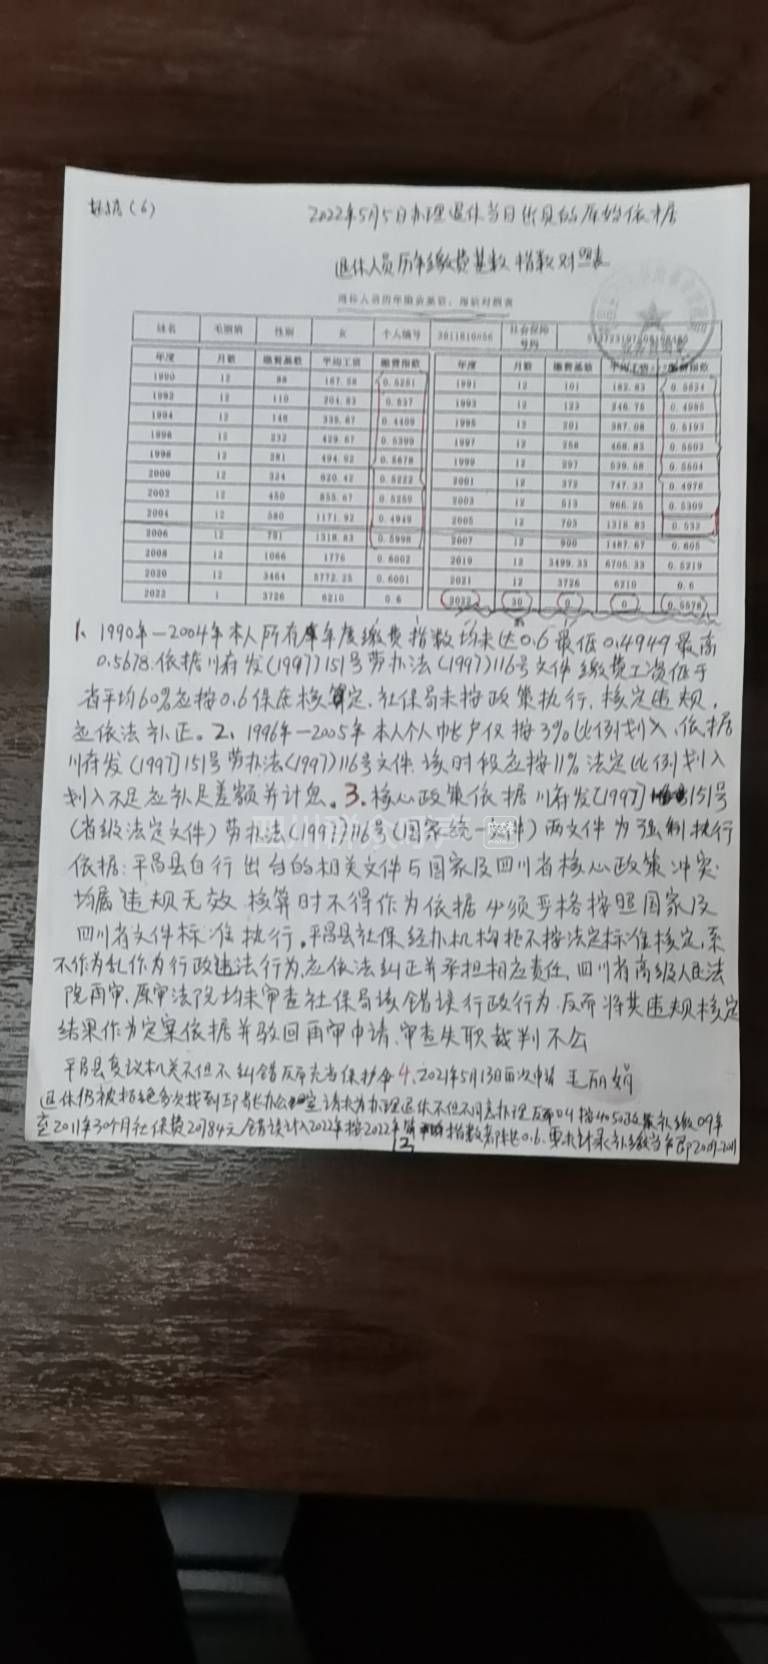 (6) 2022年5月5日办理退休当日出具的原始依据
退休人员历年缴费基数指数对照表
退休人员历年缴费基数、指数对照表
姓名 毛丽娟 性别 女 个人编号 3011810056 社会保障号码
年度 月数 缴费基数 平均工资 缴费指数 年度 月数 缴费基数 平均工资 缴费指数
1990 12 88 167.58 0.5251 1991 12 101 182.83 0.5524
1992 12 110 204.83 0.537 1993 12 123 246.75 0.4985
1994 12 148 335.67 0.4409 1995 12 201 387.08 0.5193
1996 12 232 429.67 0.5399 1997 12 258 468.83 0.5503
1998 12 281 494.92 0.5678 1999 12 297 539.58 0.5504
2000 12 324 620.42 0.5222 2001 12 372 747.33 0.4978
2002 12 450 855.67 0.5259 2003 12 513 966.25 0.5309
2004 12 580 1171.92 0.4949 2005 12 703 1318.83 0.532
2006 12 791 1318.83 0.5998 2007 12 900 1487.67 0.605
2008 12 1066 1776 0.6002 2019 12 3499.33 6705.33 0.5219
2020 12 3464 5772.25 0.6001 2021 12 3726 6210 0.6
2022 1 3726 6210 0.6 2022 30 0 0 0.5576
1、1990年—2004年本人所有年度缴费指数均未达0.6最低0.4949最高
0.5678.依据川府发(1997)151号劳办法(1997)116号文件缴费工资低于
省平均60%应按0.6保底核算定.社保局未按政策执行,核定违规,
应依法补正。2、1996年—2005年本人个人帐户仅按3%比例划入.依据
川府发(1997)151号劳办法(1997)116号文件.该时段应按11%法定比例划入
划入不足应补足差额并计息。3.核心政策依据川府发[1997]151号
(省级法定文件)劳办法(1997)116号(国家统一文件)两文件为强制执行
依据:平昌县自行出台的相关文件与国家及四川省核心政策冲突.
均属违规无效 核算时不得作为依据必须严格按照国家及
四川省文件标准执行。平昌县社保经办机构拒不按法定标准核定,系
不作为乱作为行政违法行为,应依法纠正并承担相应责任.四川省高级人民法
院再审、原审法院均未审查社保局该错误行政行为.反而将其违规核定
结果作为定案依据并驳回再审申请.审查失职裁判不公
平昌县复议机关不但不纠错反而充当保护伞4、2021年5月13日再次申请 毛丽娟
退休仍被拒绝多次找到 办公室请求为办理退休不但不同意办理反 补缴09年
至2011年30个月社保费20784元错误计入2022年按2022年 指数 0.6.要求 2009-2011
四川群众呼声